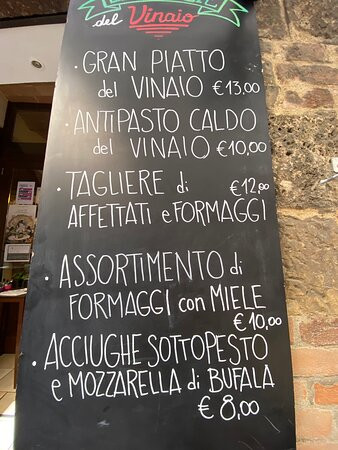 del Vinaio
· GRAN PIATTO
del VINAIO €13,00
· ANTIPASTO CALDO
del VINAIO €10,00
· TAGLIERE di €12,00
AFFETTATI e FORMAGGI
· ASSORTIMENTO di
FORMAGGI con MIELE
€10,00
· ACCIUGHE SOTTOPESTO
e MOZZARELLA di BUFALA
€ 8,00